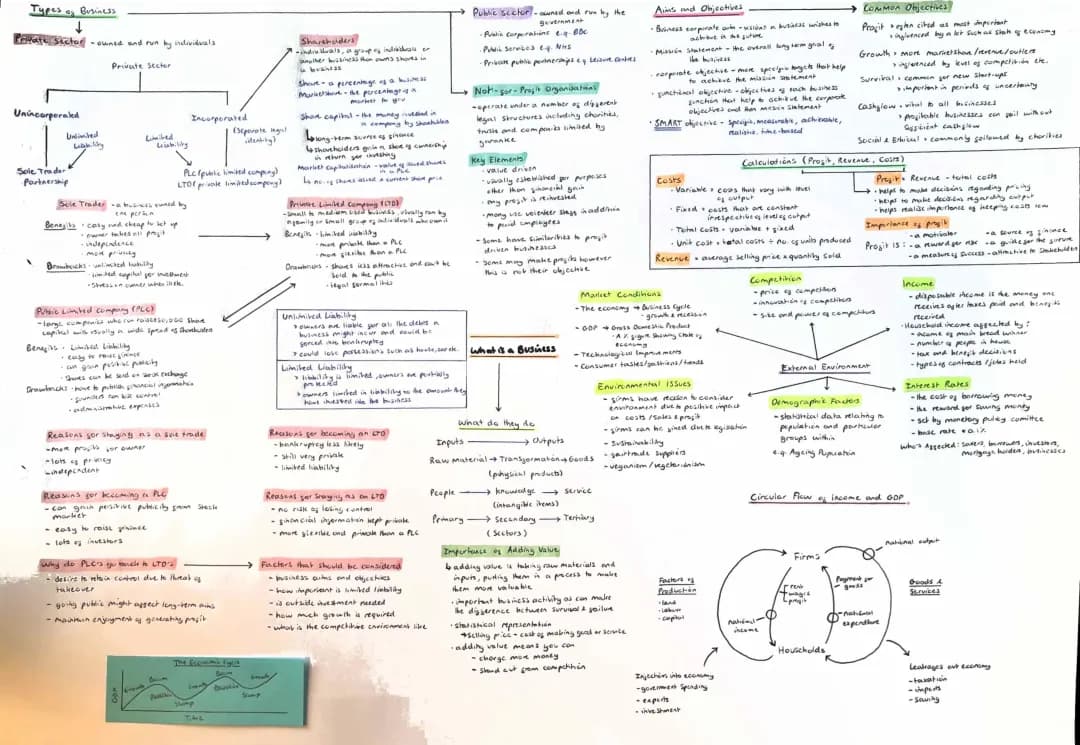 Types of Business
Private Sector - owned and run by individuals
Private Sector
Unincorporated
Incorporated
(seperate legal
identity)
Unlimited
Liability
Limited
Liability
Sole Trader
Partnership
PLC (public limited company)
LTD (private limited company)
Sole Trader - a business owned by
one person
Benefits - easy and cheap to set up
- owner takes all profit
- independence
- more privacy
Drawbacks - unlimited liability
- limited capital for investment
Public Limited Company (PLC)
Benefits - Limited Liability
- easy to raise finance
- can gain positive publicity
- shares can be sold on stock exchange
Drawbacks - have to publish financial information
- administrative expenses
Reasons for staying as a sole trade
- more profits for owner
- lots of privacy
- independent
Reasons for becoming a PLC
- can gain positive publicity from stock
market
- easy to raise finance
- lots of investors
Why do PLC's go back to LTD's
- desire to retain control due to threat of
takeover
- going public might affect long-term aims
- maintain enjoyment of generating profit
The Economic Cycle
GDP
Growth
Boom
Recession
Slump
Growth
Boom
Recession
Slump
Growth
Time
Shareholders
- individuals, a group of individuals or
another business than owns shares in
a business
Share - a percentage of a business
Marketshare - the percentage of a
market to you
Share capital - the money invested in
a company by shareholders
↳ long-term source of finance
↳ shareholders gain a share of ownership
in return for investing
Market Capitalisation - value of issued shares
in a PLC
↳ no. of shares issued x current share price
Private Limited Company (LTD)
- small to medium sized business, usually run by
a family or small group of individuals who own it
Benefits - limited liability
- more private than a PLC
- more flexible than a PLC
Drawbacks - shares less attractive and can't be
sold to the public
- legal formalities
Unlimited Liability
> owners are liable for all the debts a
business might incur and could be
forced into bankruptcy
> could lose possessions such as house, car etc.
Limited Liability
> liability is limited, owners are partially
protected
> owners limited in liability to the amount they
have invested into the business
Reasons for becoming an LTD
- bankruptcy less likely
- still very private
- limited liability
Reasons for staying as an LTD
- no risk of losing control
- financial information kept private
- more flexible and private than a PLC
Factors that should be considered
- business aims and objectives
- how important is limited liability
- is outside investment needed
- how much growth is required
- what is the competitive environment like
Public Sector - owned and run by the
government
- Public Corporations e.g. BBC
- Public Services e.g. NHS
- Private public partnerships e.g leisure centres
Not-for-Profit Organisations
- operate under a number of different
legal structures including charities,
trusts and companies limited by
Key Elements
- value driven
- usually established for purposes
other than financial gain
- any profit is reinvested
- many use volunteer staff in addition
to paid employees
- some have similarities to profit
driven businesses
- some may make profits however
this is not their objective
What is a Business
What do they do
Inputs → Outputs
Raw Material → Transformation → Goods
(physical products)
People → knowledge → Service
(intangible items)
Primary → Secondary → Tertiary
(Sectors)
Importance of Adding Value
↳ adding value is taking raw materials and
inputs, putting them in a process to make
them more valuable
- important business activity as can make
the difference between survival & failure
- statistical representation
→ selling price - cost of making good or service
- adding value means you can
- charge more money
- stand out from competition
Aims and Objectives
- Business corporate aim - vision a business wishes to
achieve in the future
- Mission Statement - the overall long term goal of
the business
- corporate objective - more specific targets that help
to achieve the mission statement
- functional objective - objectives of each business
function that help to achieve the corporate
objectives and then mission statement
- SMART objective - specific, measurable, achievable,
realistic, time-based
Common Objectives
Profit > often cited as most important
> influenced by a lot such as state of economy
Growth > more marketshare/revenue/outlets
> influenced by level of competition etc.
Survival > common for new start-ups
> important in periods of uncertainty
Cashflow > vital to all businesses
> profitable businesses can fail without
efficient cashflow
Social & Ethical > commonly followed by charities
Calculations (Profit, Revenue, Costs)
Costs
- Variable > costs that vary with level
of output
- Fixed > costs that are constant
irrespective of level of output
- Total costs > variable + fixed
- Unit Cost > total costs ÷ no. of units produced
Revenue > average selling price x quantity sold
Profit > Revenue - total costs
- helps to make decisions regarding pricing
- helps to make decisions regarding output
- helps realise importance of keeping costs low
Importance of profit
Profit is: - a motivator
- a reward for risk
- a measure of success
- a source of finance
- a guide for the future
- attractive to stakeholders
Market Conditions
- The economy → Business Cycle
- growth & recession
- GDP → Gross Domestic Product
- A % figure showing state of
economy
- Technological Improvements
- Consumer tastes/fashions/trends
Competition
- price of competitors
- innovation of competitors
- size and power of competitors
Income
- disposable income is the money one
receives after taxes paid and benefits
received
- Household income affected by:
- income of main bread winner
- number of people in house
- tax and benefit decisions
- types of contracts / jobs held
External Environment
Environmental Issues
- firms have reason to consider
environment due to positive impact
on costs / sales & profit
- Sustainability
- fairtrade suppliers
- veganism/vegetarianism
Demographic Factors
- statistical data relating to
population and particular
groups within
e.g. Ageing Population
Interest Rates
- the cost of borrowing money
- the reward for saving money
- set by monetary policy comittee
- base rate = 0.1%
Who's Affected: Savers, borrowers, investors,
mortgage holders, businesses
Circular Flow of Income and GDP
Firms
national output
Factors of
Production
- land
- labour
- capital
rent
wages
profit
Payment for
goods
Goods &
Services
national
income
national
expenditure
Households
Injections into economy
- government spending
- exports
- investment
Leakages out economy
- taxation
- imports
- saving